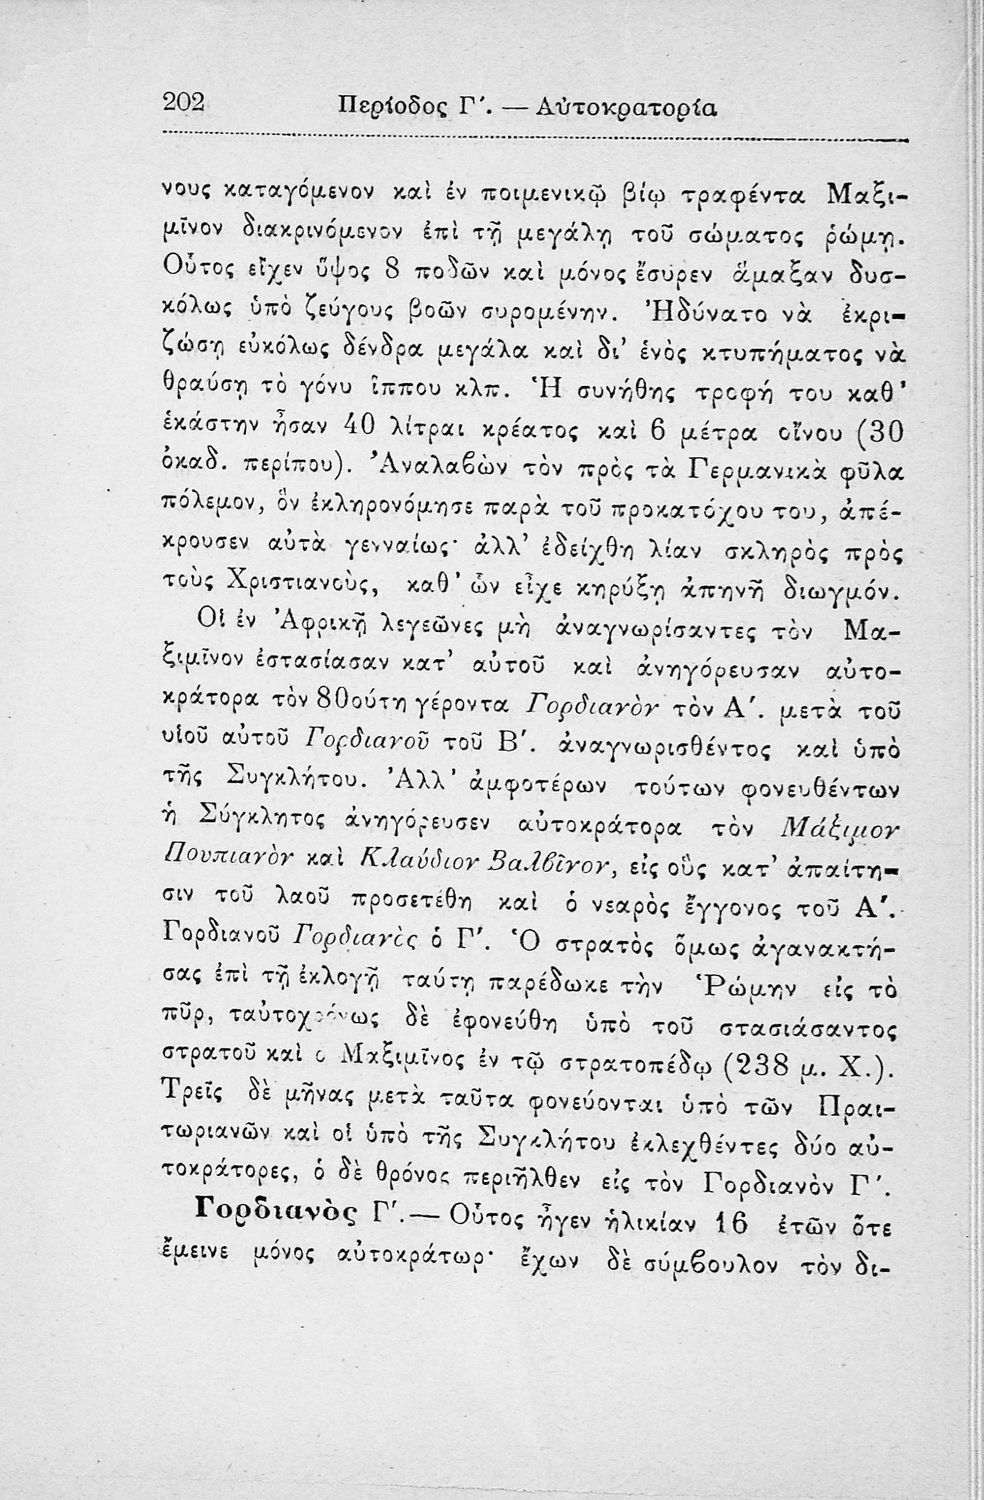 202 Περίοδος Γ΄. — Αὐτοκρατορία
νους καταγόμενον καὶ ἐν ποιμενικῷ βίῳ τραφέντα Μαξι-
μῖνον διακρινόμενον ἐπὶ τῇ μεγάλῃ τοῦ σώματος ῥώμῃ.
Οὗτος εἶχεν ὕψος 8 ποδῶν καὶ μόνος ἔσυρεν ἅμαξαν δυσ-
κόλως ὑπὸ ζεύγους βοῶν συρομένην. Ἠδύνατο νὰ ἐκρι-
ζώσῃ εὐκόλως δένδρα μεγάλα καὶ δι’ ἑνὸς κτυπήματος νὰ
θραύσῃ τὸ γόνυ ἵππου κλπ. Ἡ συνήθης τροφή του καθ’
ἑκάστην ἦσαν 40 λίτραι κρέατος καὶ 6 μέτρα οἴνου (30
ὀκαδ. περίπου). Ἀναλαβὼν τὸν πρὸς τὰ Γερμανικὰ φῦλα
πόλεμον, ὃν ἐκληρονόμησε παρὰ τοῦ προκατόχου του, ἀπέ-
κρουσεν αὐτὰ γενναίως· ἀλλ’ ἐδείχθη λίαν σκληρὸς πρὸς
τοὺς Χριστιανοὺς, καθ’ ὧν εἶχε κηρύξῃ ἀπηνῆ διωγμόν.
Οἱ ἐν Ἀφρικῇ λεγεῶνες μὴ ἀναγνωρίσαντες τὸν Μα-
ξιμῖνον ἐστασίασαν κατ’ αὐτοῦ καὶ ἀνηγόρευσαν αὐτο-
κράτορα τὸν 80ούτη γέροντα Γορδιανὸν τὸν Α΄. μετὰ τοῦ
υἱοῦ αὐτοῦ Γορδιανοῦ τοῦ Β΄. ἀναγνωρισθέντος καὶ ὑπὸ
τῆς Συγκλήτου. Ἀλλ’ ἀμφοτέρων τούτων φονευθέντων
ἡ Σύγκλητος ἀνηγόρευσεν αὐτοκράτορα τὸν Μάξιμον
Πουπιανὸν καὶ Κλαύδιον Βαλβῖνον, εἰς οὓς κατ’ ἀπαίτη-
σιν τοῦ λαοῦ προσετέθη καὶ ὁ νεαρὸς ἔγγονος τοῦ Α΄.
Γορδιανοῦ Γορδιανὸς ὁ Γ΄. Ὁ στρατὸς ὅμως ἀγανακτή-
σας ἐπὶ τῇ ἐκλογῇ ταύτῃ παρέδωκε τὴν Ῥώμην εἰς τὸ
πῦρ, ταὐτοχρόνως δὲ ἐφονεύθη ὑπὸ τοῦ στασιάσαντος
στρατοῦ καὶ ὁ Μαξιμῖνος ἐν τῷ στρατοπέδῳ (238 μ. Χ.).
Τρεῖς δὲ μῆνας μετὰ ταῦτα φονεύονται ὑπὸ τῶν Πραι-
τωριανῶν καὶ οἱ ὑπὸ τῆς Συγκλήτου ἐκλεχθέντες δύο αὐ-
τοκράτορες, ὁ δὲ θρόνος περιῆλθεν εἰς τὸν Γορδιανὸν Γ΄.
Γορδιανὸς Γ΄.— Οὗτος ἦγεν ἡλικίαν 16 ἐτῶν ὅτε
ἔμεινε μόνος αὐτοκράτωρ· ἔχων δὲ σύμβουλον τὸν δι-